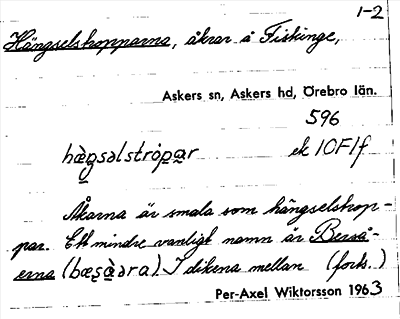 1-2
Hängselstropparna, åkrar å Fiskinge,
Askers sn, Askers hd, Örebro län.
596
hæ̀ŋsəlstròpar ek 10F1f
Åkarna är smala som hängselstrop-
par. Ett mindre vanligt namn är Berså-
erna (bæʂàəra). I dikena mellan (forts.)
Per-Axel Wiktorsson 1963